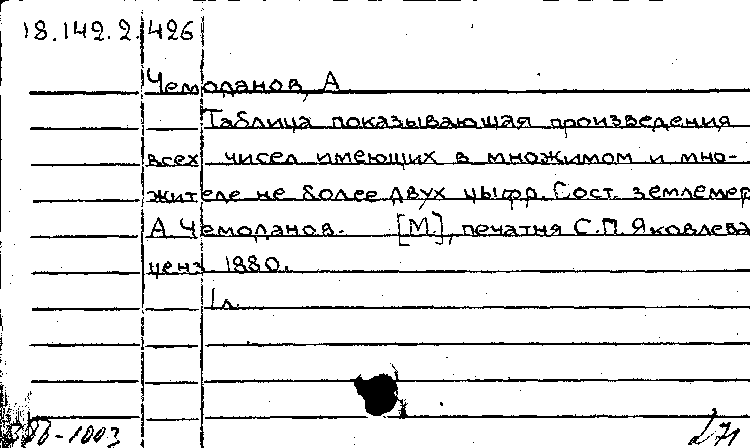 18.142.2.426
Чемоданов, А
Таблица показывающая произведения
всех чисел имеющих в множимом и мно-
жителе не более двух цыфр. Сост. землемер
А. Чемоданов. [М.], печатня С.П. Яковлева
ценз. 1880.
1л.
-1003
271